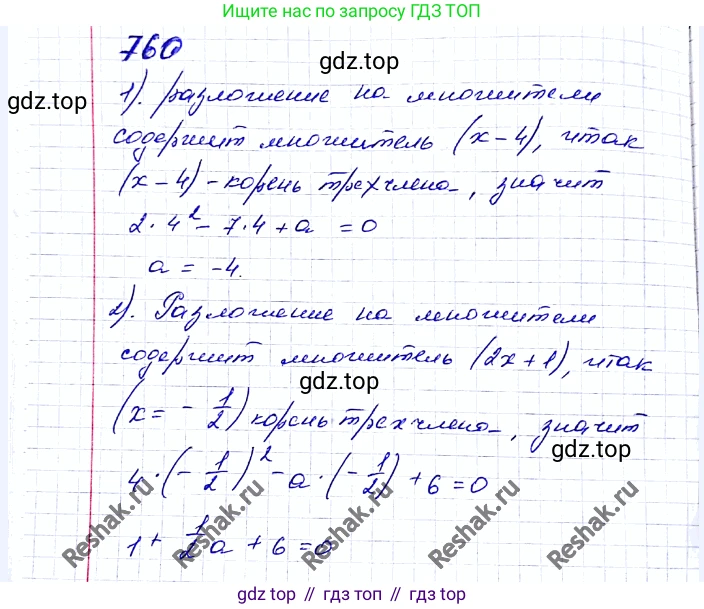 Ищите нас по запросу ГДЗ ТОП
760
gdz.top
gdz.top
1). разложение на множители
содержит множитель (x-4), итак
(x-4) - корень трехчлена, значит
2·4² - 7·4 + a = 0
a = -4.
2). Разложение на множители
содержит множитель (2x+1), итак
gdz.top
(x = -1/2) корень трехчлена, значит
gdz.top
4·(-1/2)² - a·(-1/2) + 6 = 0
1 + 1/2 a + 6 = 0
Reshak.ru
Reshak.ru
Reshak.ru
Reshak.ru
Reshak.ru
gdz top // гдз топ // gdz top